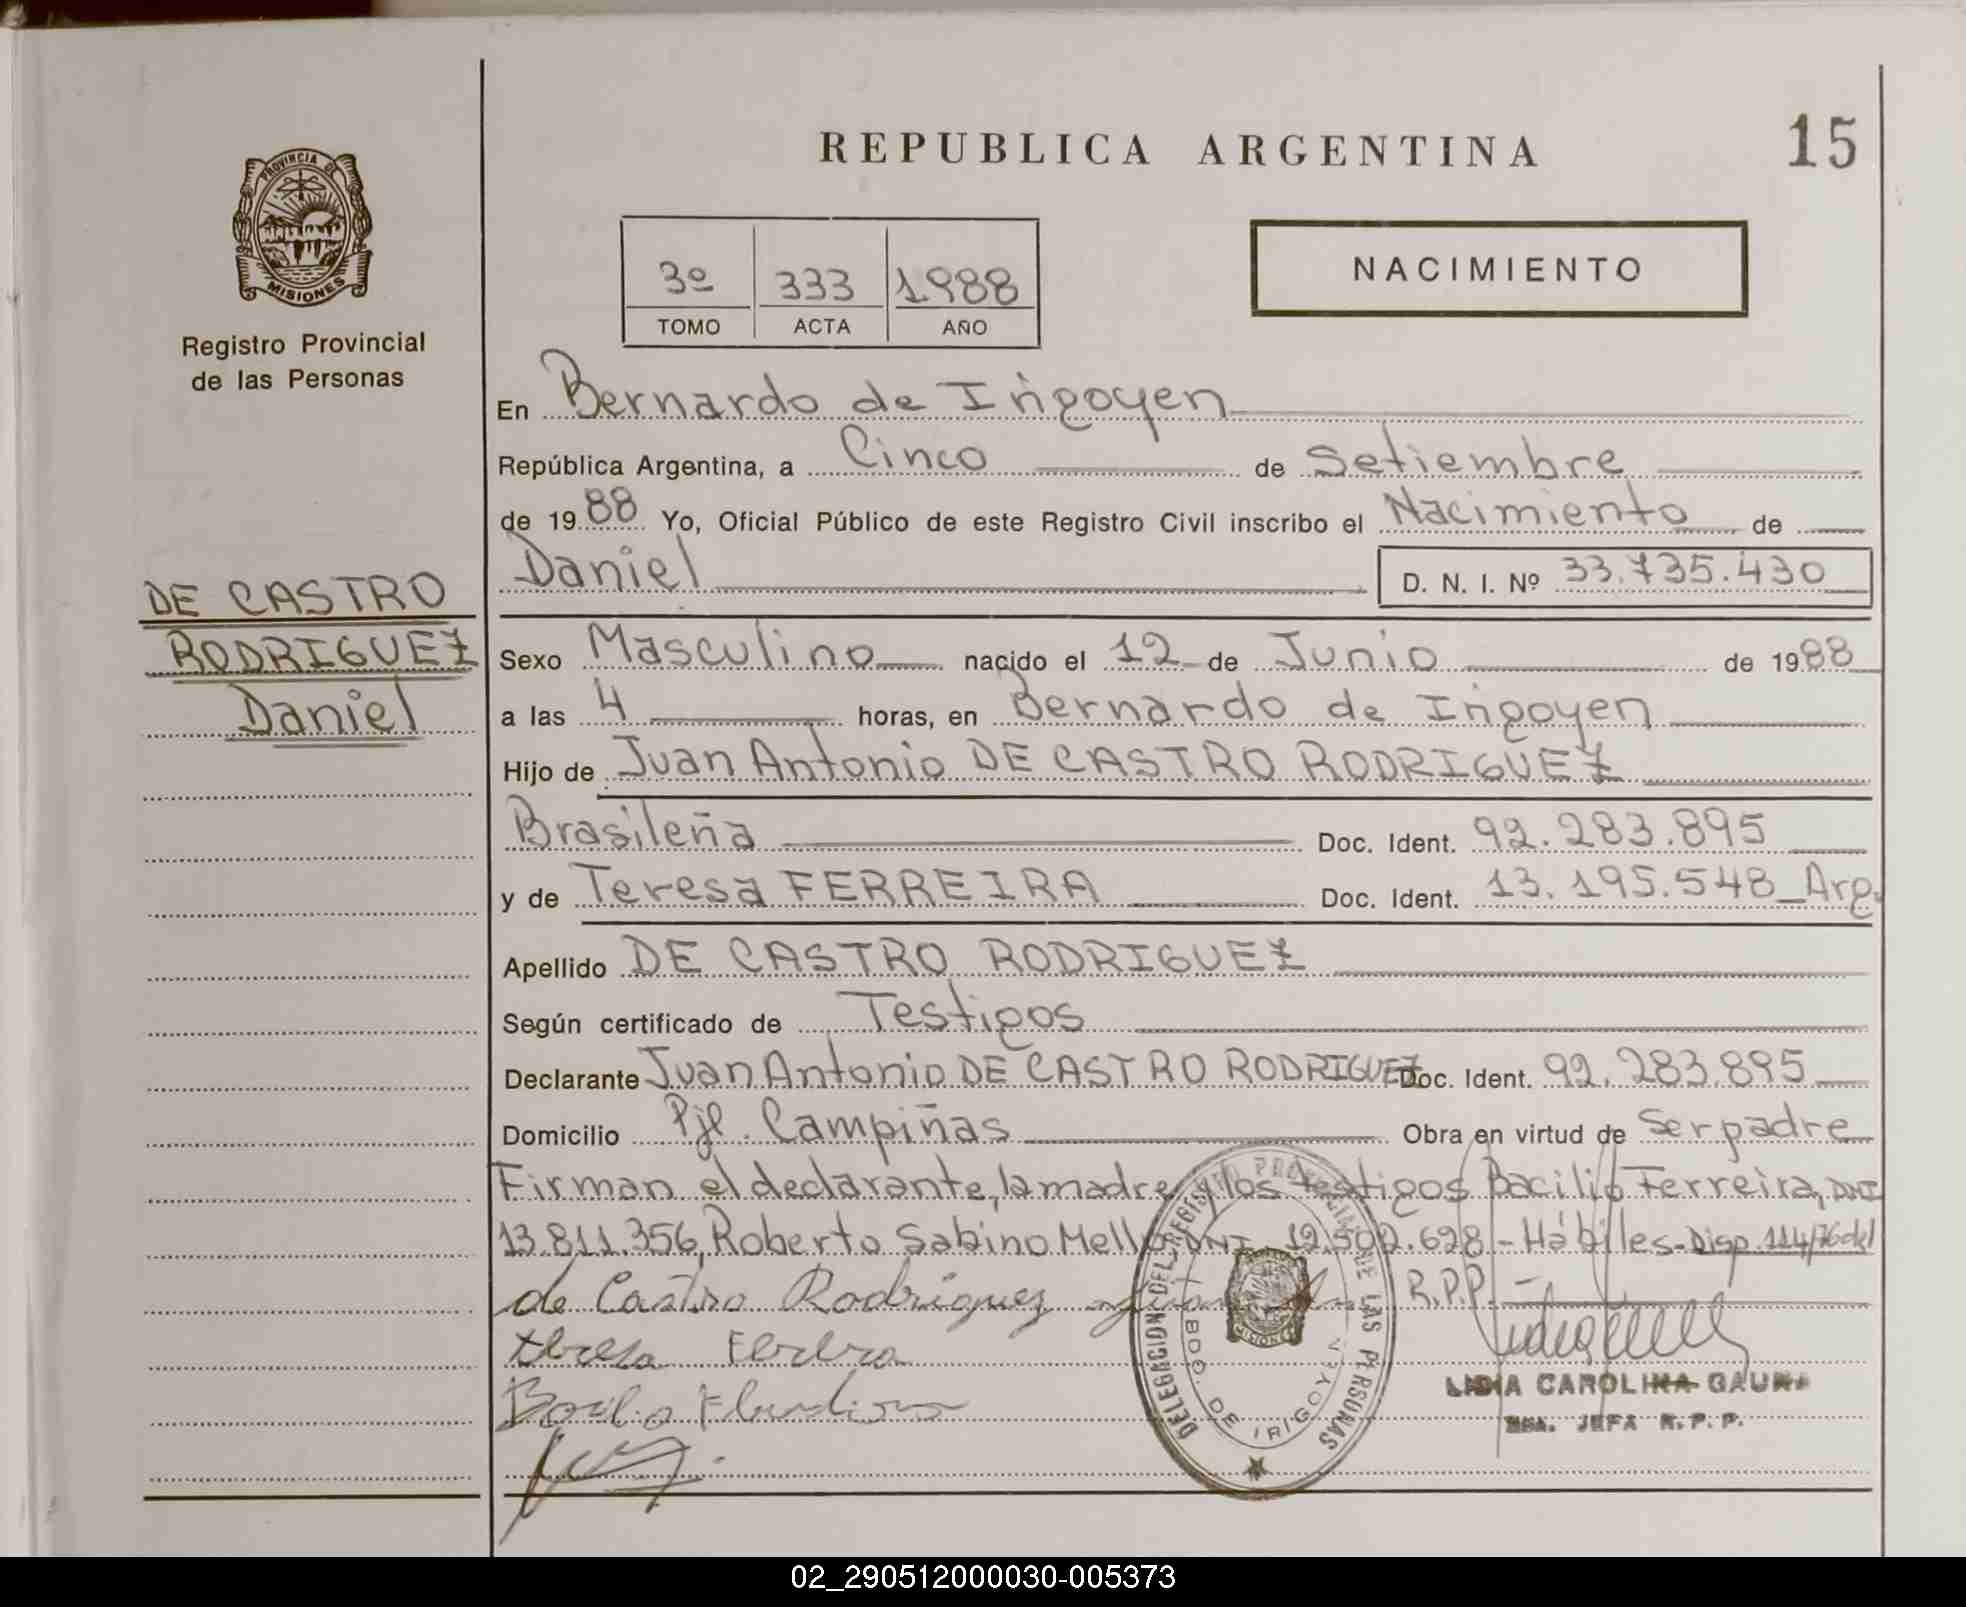 REPUBLICA ARGENTINA
15
PROVINCIA DE
MISIONES
Registro Provincial
de las Personas
3º 333 1988
TOMO ACTA AÑO
NACIMIENTO
En Bernardo de Irigoyen
República Argentina, a Cinco de Setiembre
de 1988 Yo, Oficial Público de este Registro Civil inscribo el Nacimiento de
Daniel D. N. I. Nº 33.735.430
DE CASTRO
RODRIGUEZ
Daniel
Sexo Masculino nacido el 12 de Junio de 1988
a las 4 horas, en Bernardo de Irigoyen
Hijo de Juan Antonio DE CASTRO RODRIGUEZ
Brasileña Doc. Ident. 92.283.895
y de Teresa FERREIRA Doc. Ident. 13.195.548_Arg.
Apellido DE CASTRO RODRIGUEZ
Según certificado de Testigos
Declarante Juan Antonio DE CASTRO RODRIGUEZ Doc. Ident. 92.283.895
Domicilio Pje. Campiñas Obra en virtud de Ser padre
Firman el declarante, la madre y los testigos Bacilio Ferreira, DNI
13.811.356, Roberto Sabino Mello, DNI 12.502.628 - Hábiles - Disp. 114/76 del
de Castro Rodriguez R.P.P. -
teresa
LIDIA CAROLINA GAUNA
JEFA R. P. P.
DELEGACION DEL REGISTRO PROVINCIAL DE LAS PERSONAS
BDO. DE IRIGOYEN
MISIONES
02_290512000030-005373